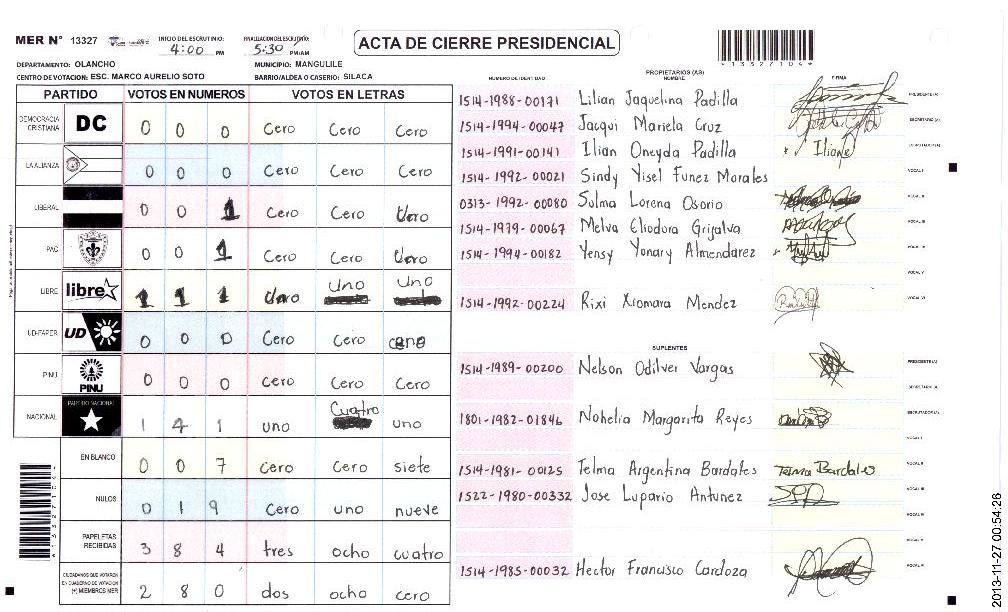 MER N° 13327
INICIO DEL ESCRUTINIO: 4:00 PM
FINALIZACION DEL ESCRUTINIO: 5:30 PM/AM
ACTA DE CIERRE PRESIDENCIAL
*13327104*
DEPARTAMENTO: OLANCHO
MUNICIPIO: MANGULILE
CENTRO DE VOTACION: ESC. MARCO AURELIO SOTO
BARRIO/ALDEA O CASERIO: SILACA
PARTIDO VOTOS EN NUMEROS VOTOS EN LETRAS
DEMOCRACIA CRISTIANA DC 0 0 0 Cero Cero Cero
LA ALIANZA 0 0 0 Cero Cero Cero
LIBERAL 0 0 1 Cero Cero Uno
PAC 0 0 1 Cero Cero Uno
LIBRE libre 1 1 1 Uno Uno Uno
UD-FAPER UD 0 0 0 Cero Cero
PINU PINU 0 0 0 Cero Cero Cero
NACIONAL PARTIDO NACIONAL 1 4 1 uno Cuatro uno
EN BLANCO 0 0 7 Cero Cero siete
NULOS 0 1 9 Cero uno nueve
PAPELETAS RECIBIDAS 3 8 4 tres ocho cuatro
CIUDADANOS QUE VOTARON EN CUADERNO DE VOTACION (+) MIEMBROS MER 2 8 0 dos ocho cero
NUMERO DE IDENTIDAD PROPIETARIOS (AS) NOMBRE FIRMA
1514-1988-00171 Lilian Jaquelina Padilla PRESIDENTE (A)
1514-1994-00047 Jacqui Mariela Cruz SECRETARIO (A)
1514-1991-00141 Ilian Oneyda Padilla Iliane ESCRUTADOR (A)
1514-1992-00021 Sindy Yisel Funez Morales VOCAL I
0313-1992-00080 Sulma Lorena Osorio VOCAL II
1514-1979-00067 Melva Eliodora Grijalva VOCAL III
1514-1994-00182 Yensy Yonary Almendarez VOCAL IV
VOCAL V
1514-1992-00224 Rixi Xiomara Mendez VOCAL VI
SUPLENTES
1514-1989-00200 Nelson Odilver Vargas PRESIDENTE (A)
SECRETARIO (A)
1801-1982-01846 Nohelia Margarita Reyes ESCRUTADOR (A)
VOCAL I
1514-1981-00125 Telma Argentina Bardales Telma Bardales VOCAL II
1522-1980-00332 Jose Lupario Antunez VOCAL III
VOCAL IV
VOCAL V
1514-1985-00032 Hector Francisco Cardoza VOCAL VI
2013-11-27 00:54:26